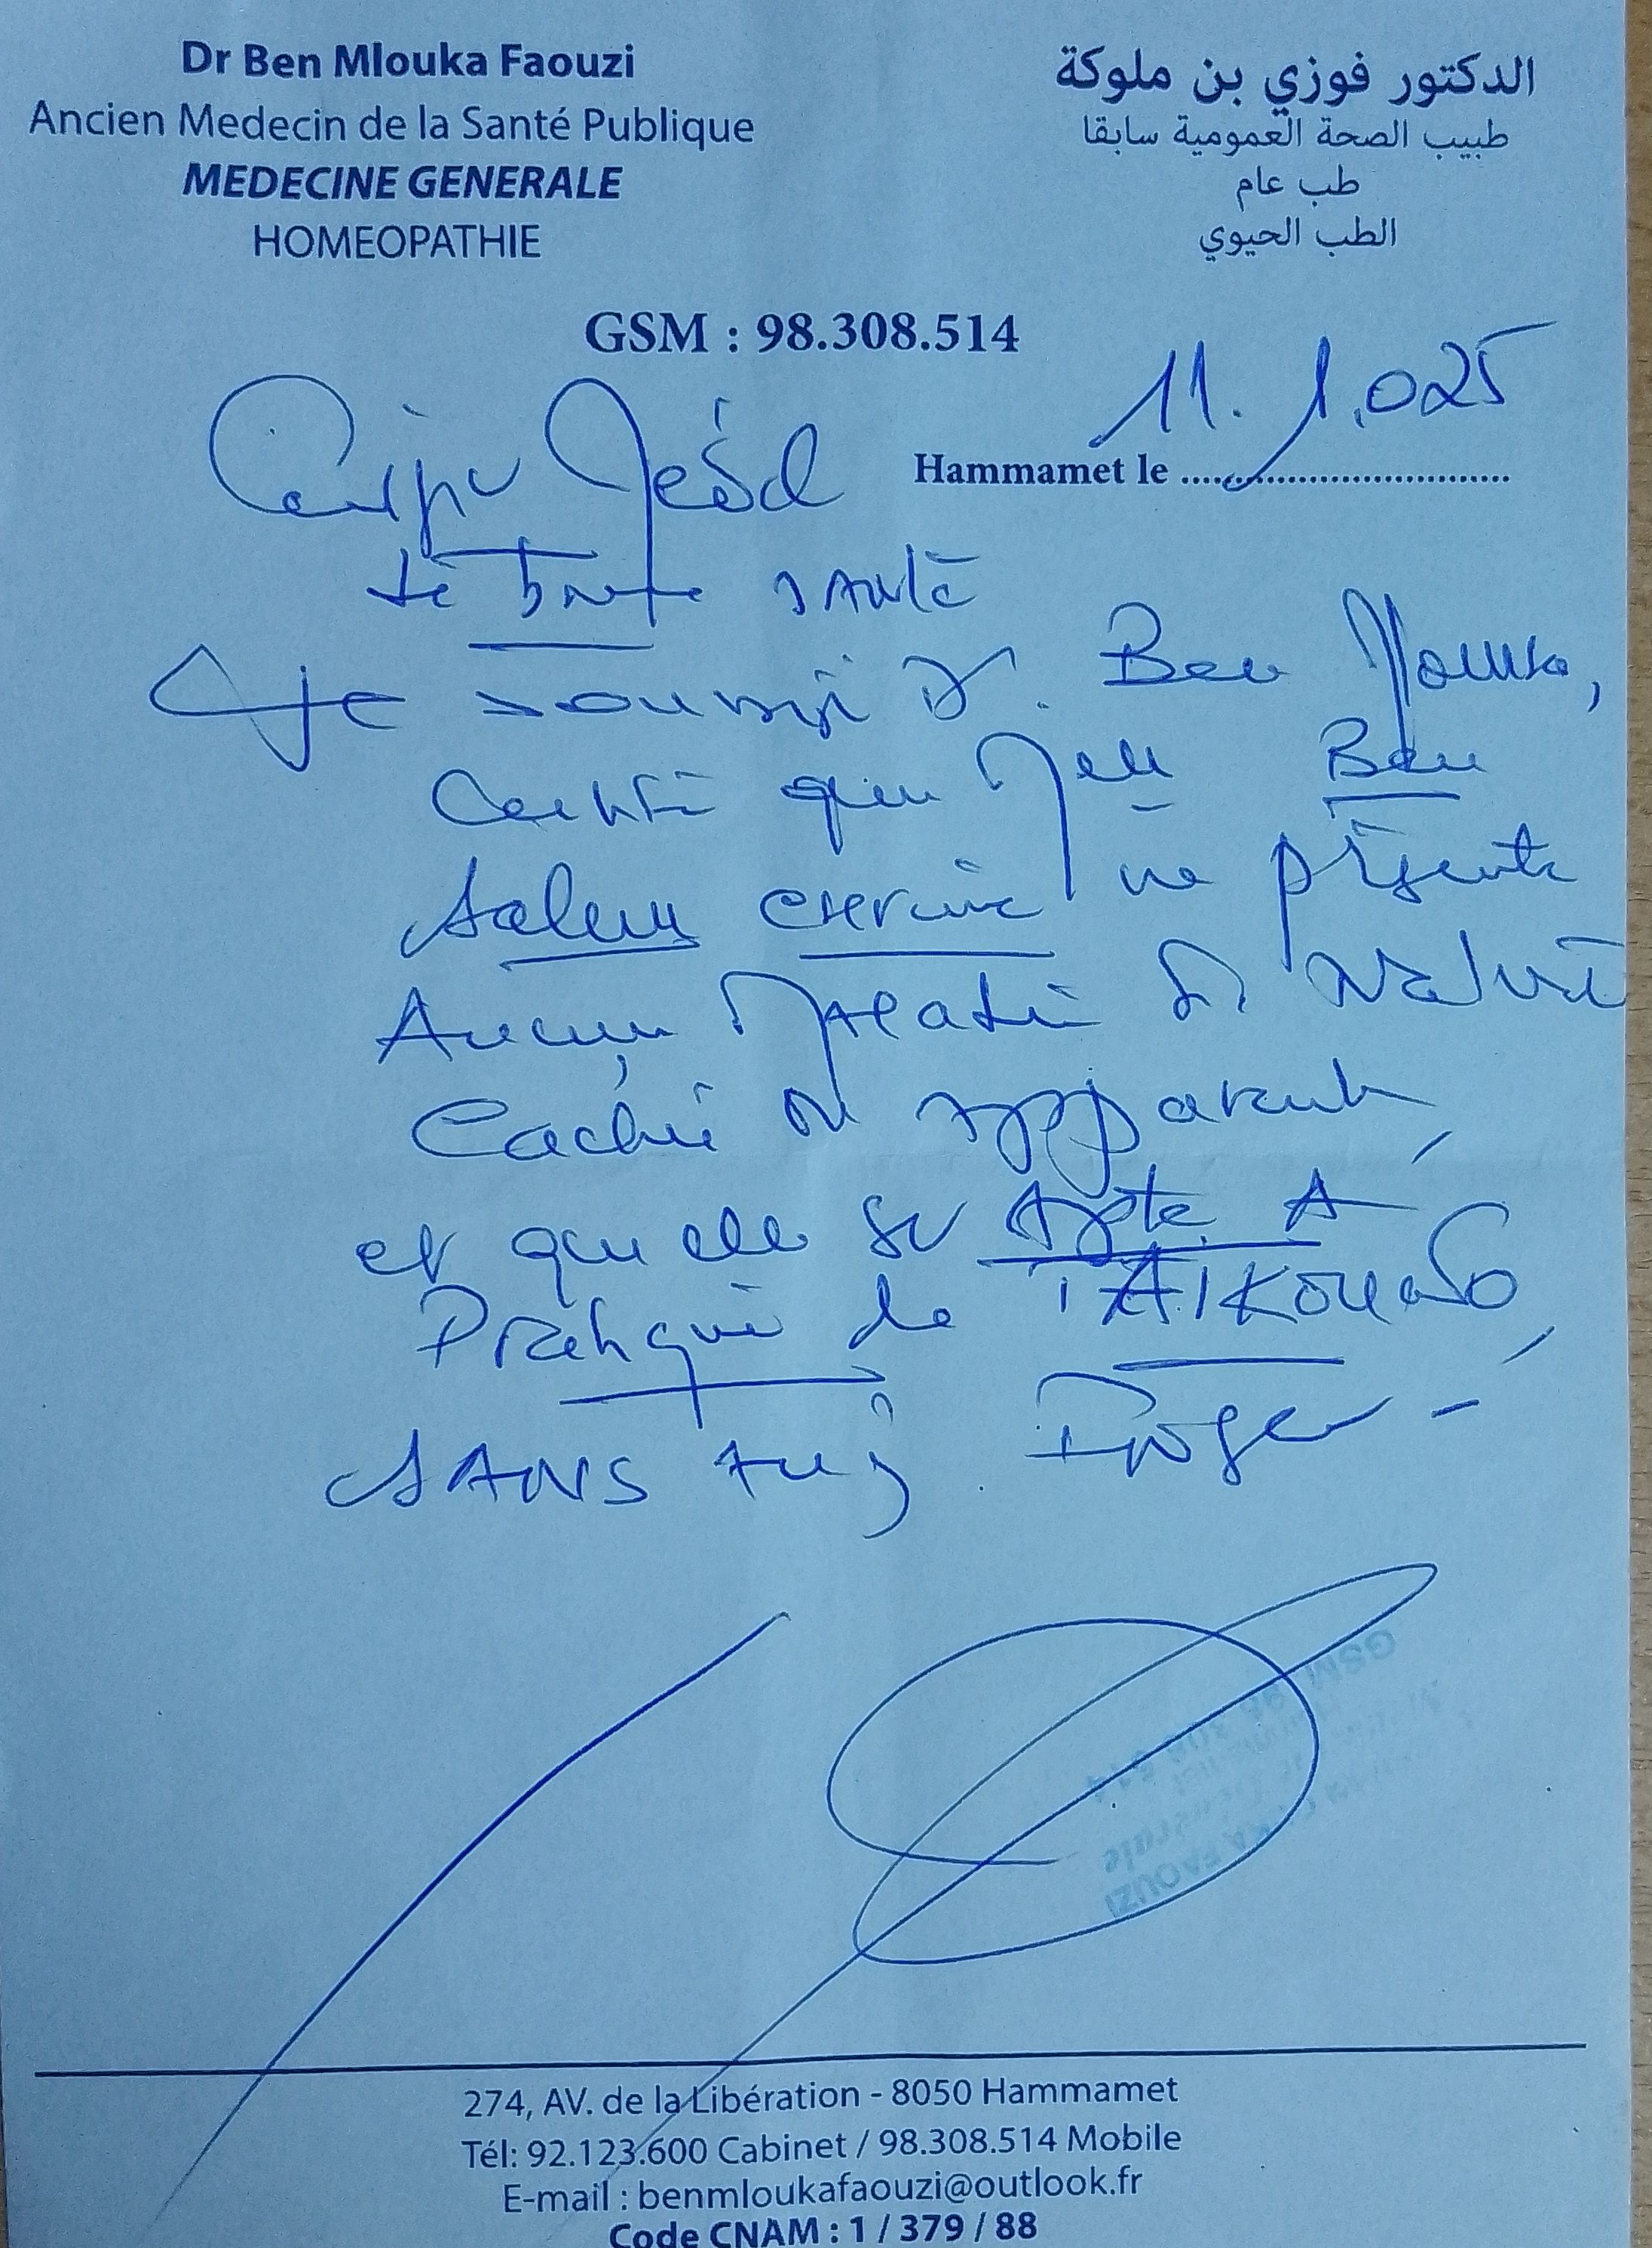 Dr Ben Mlouka Faouzi
Ancien Medecin de la Santé Publique
MEDECINE GENERALE
HOMEOPATHIE
الدكتور فوزي بن ملوكة
طبيب الصحة العمومية سابقا
طب عام
الطب الحيوي
GSM : 98.308.514
11. 1.025
Hammamet le
de bonne santé
Je soussigné Dr. Ben Mlouka,
Certifie que Melle Ben
Salem ne présente
Aucune Maladie de nature
Cachée ou apparente,
et qu'elle est Apte A
Pratiquer le TAIKOUANDO,
SANS Danger -
GSM 98 308 514
FAOUZI
274, AV. de la Libération - 8050 Hammamet
Tél: 92.123.600 Cabinet / 98.308.514 Mobile
E-mail : benmloukafaouzi@outlook.fr
Code CNAM : 1 / 379 / 88